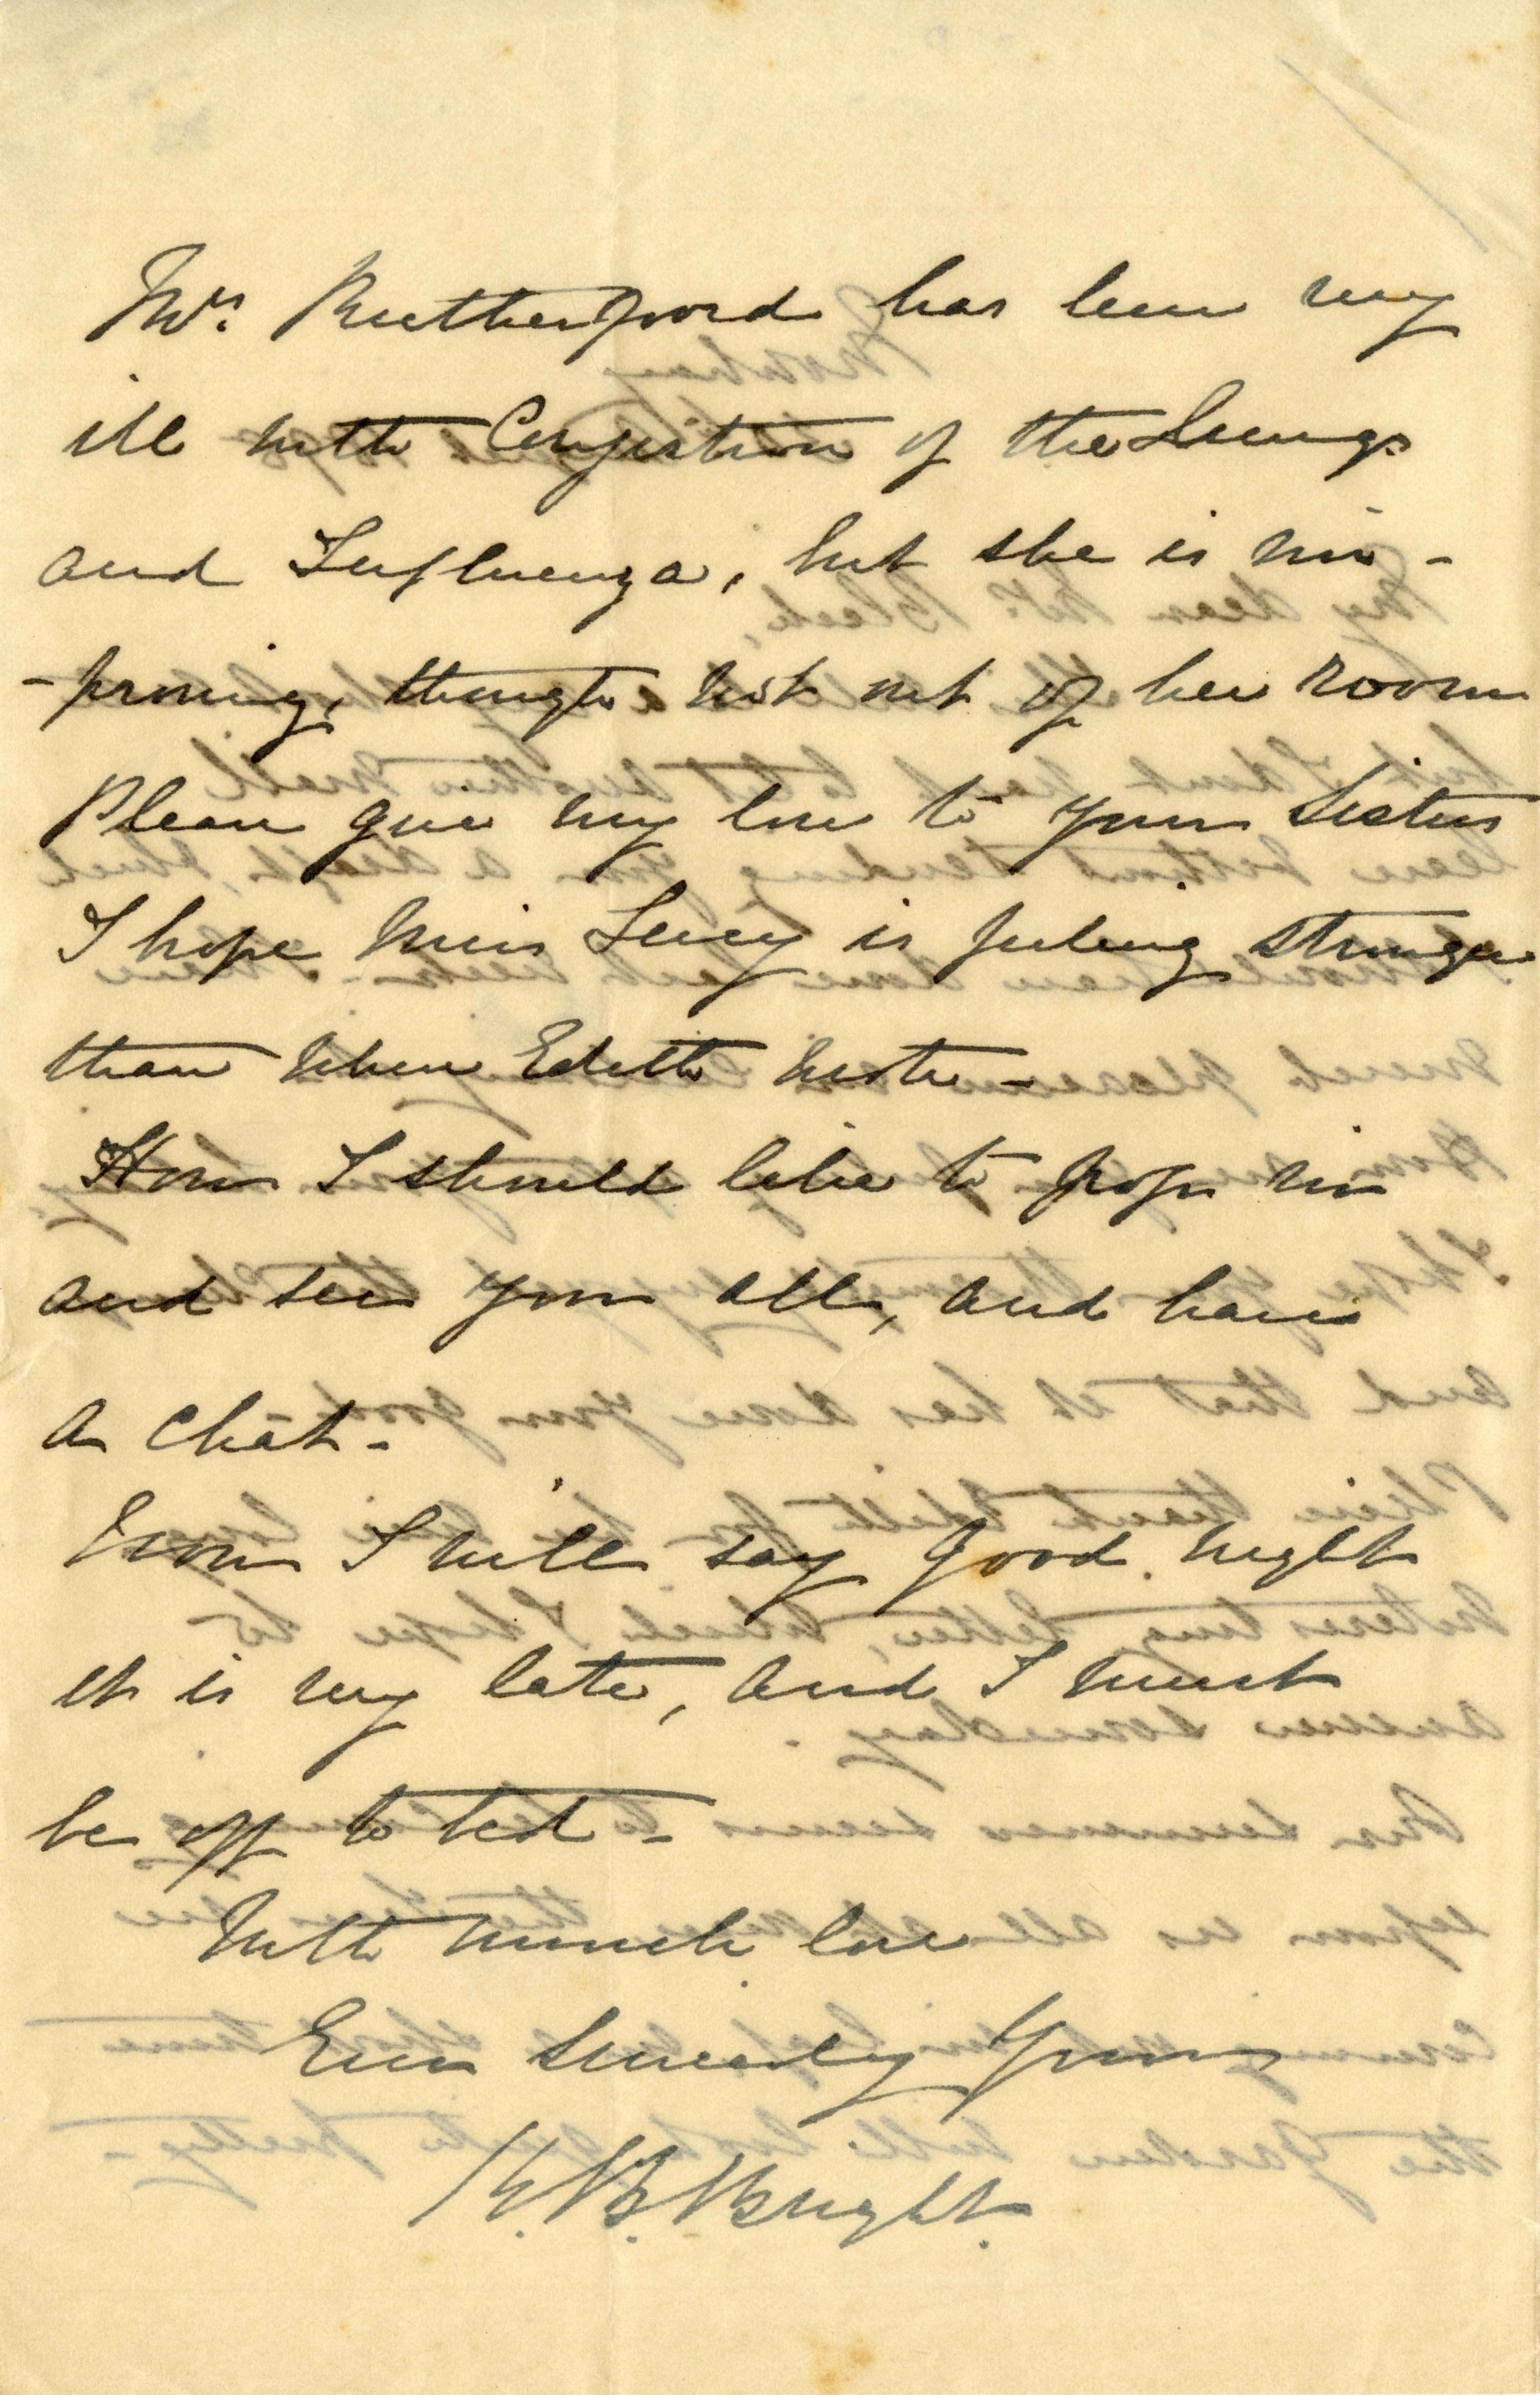 Mrs. Rutherfoord has been very
ill with Congestion of the Lungs
and Influenza, but she is im-
-proving, though not out of her room
Please give my love to your Sisters
I hope Miss Lucy is feeling stronger
than when Edith wrote -
How I should like to pop in
and see you all, and have
a chat -
Now I will say good night
it is very late, and I must
be off to bed -
With much love
Ever Sincerely Yours
K. B. Bright.